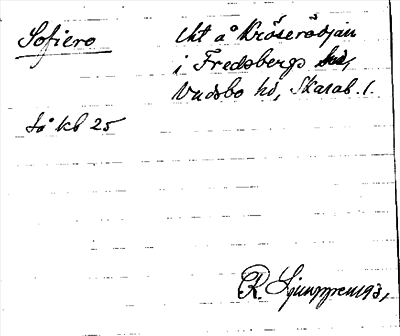 Sofiero
Ut å Kröserödjan
i Fredsbergs
Vadsbo hd, Skarab. l.
Så kb 25
R. Ljunggren 193